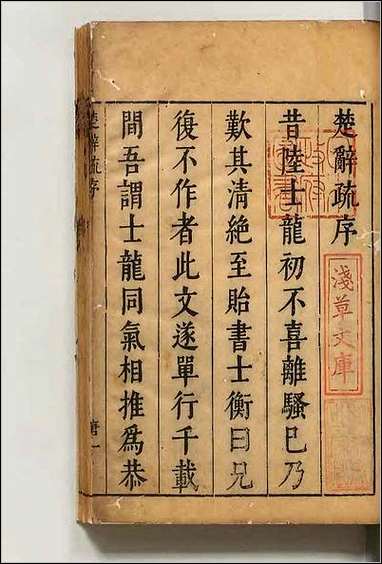 楚辭疏序
昔陸士龍初不喜離騷已乃
歎其清絶至貽書士衡曰兄
復不作者此文遂單行千載
間吾謂士龍同氣相推爲恭
楚辭疏序
唐一
淺草文庫